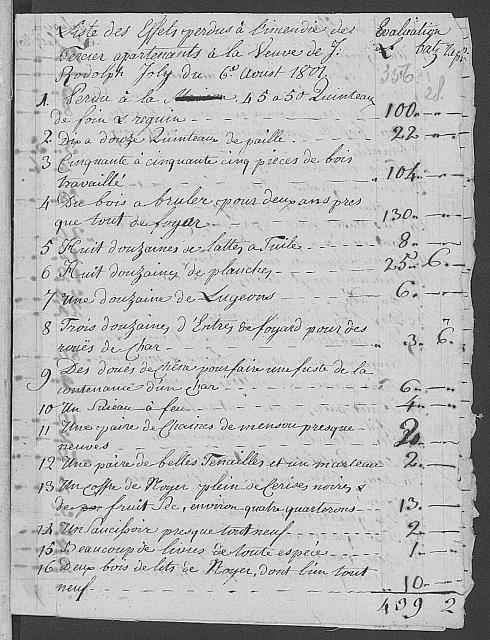 Liste des Effets perdus à l'incendie des Evaluation
apartenants à la Veuve de J: L batz
Rodolph Joly du 6e Aoust 1801. 356
1 Perdu à la Maison 45 à 50 Quinteaux
de foin & reguin 100 "
2 Dix a douze Quinteaux de paille 22 "
3 Cinquante à cinquante cinq pièces de bois
travaillé 104 "
4 Du bois a bruler pour deux ans pres
que tout de foyar 130 "
5 Huit douzaines de lattes a Tuile 8 "
6 Huit douzaines de planches 25 6
7 une douzaine de Lugeons 6 "
8 Trois douzaines d'Entes de foyard pour des
roües de Char 3 6
9 Des douës de Chêne pour faire une fuste de la
contenance d'un char 6 "
10 Un à feu 4 "
11 Une paire de Chaines de presque
neuves 20
12 Une paire de belles Tenailles et un marteau 2 "
13 Un coffre de Noyer plein de Cerises noires &
de fruit sec, environ quatre quarterons 13 "
14 Un Saucissoir presque tout neuf 2 "
15 Beaucoup de livres de toute espéce 1 "
16 Deux bois de lits de Noyer, dont l'un tout
neuf 10 "
409 2